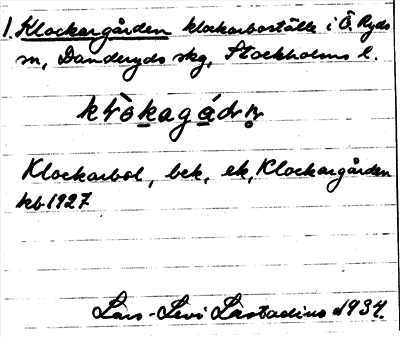 1. Klockargården klockarboställe i Ö. Ryds
sn, Danderyds skg, Stockholms l.
klòkagádṇ
Klockarbol, bek, ek, Klockargården
kb 1927
Lars-Levi Læstadius 1934.